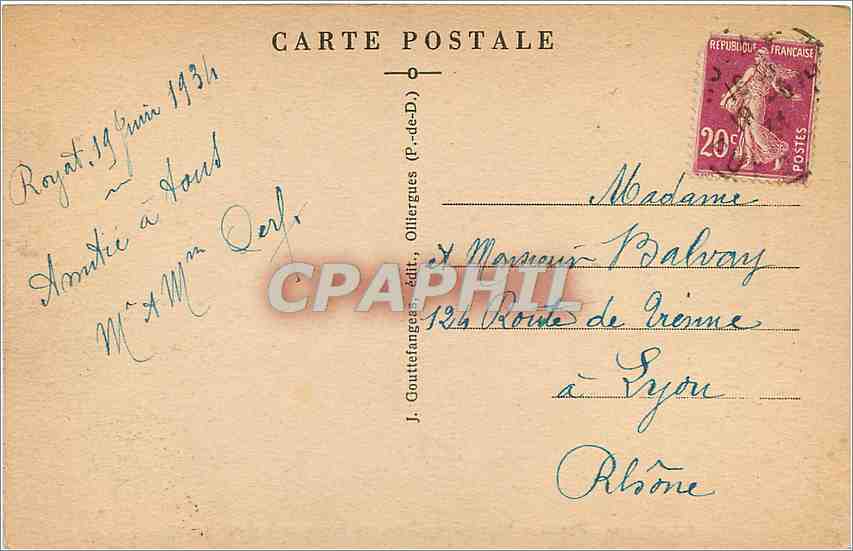 CARTE POSTALE
REPUBLIQUE FRANÇAISE
20c
POSTES
Royat, 19 Juin 1934
Amitié à tous
Mr & Mme
J. Gouttefangeas, édit., Olliergues (P.-de-D.)
CPAPHIL
Madame
et Monsieur Balvay
124 Route de Vienne
à Lyon
Rhône